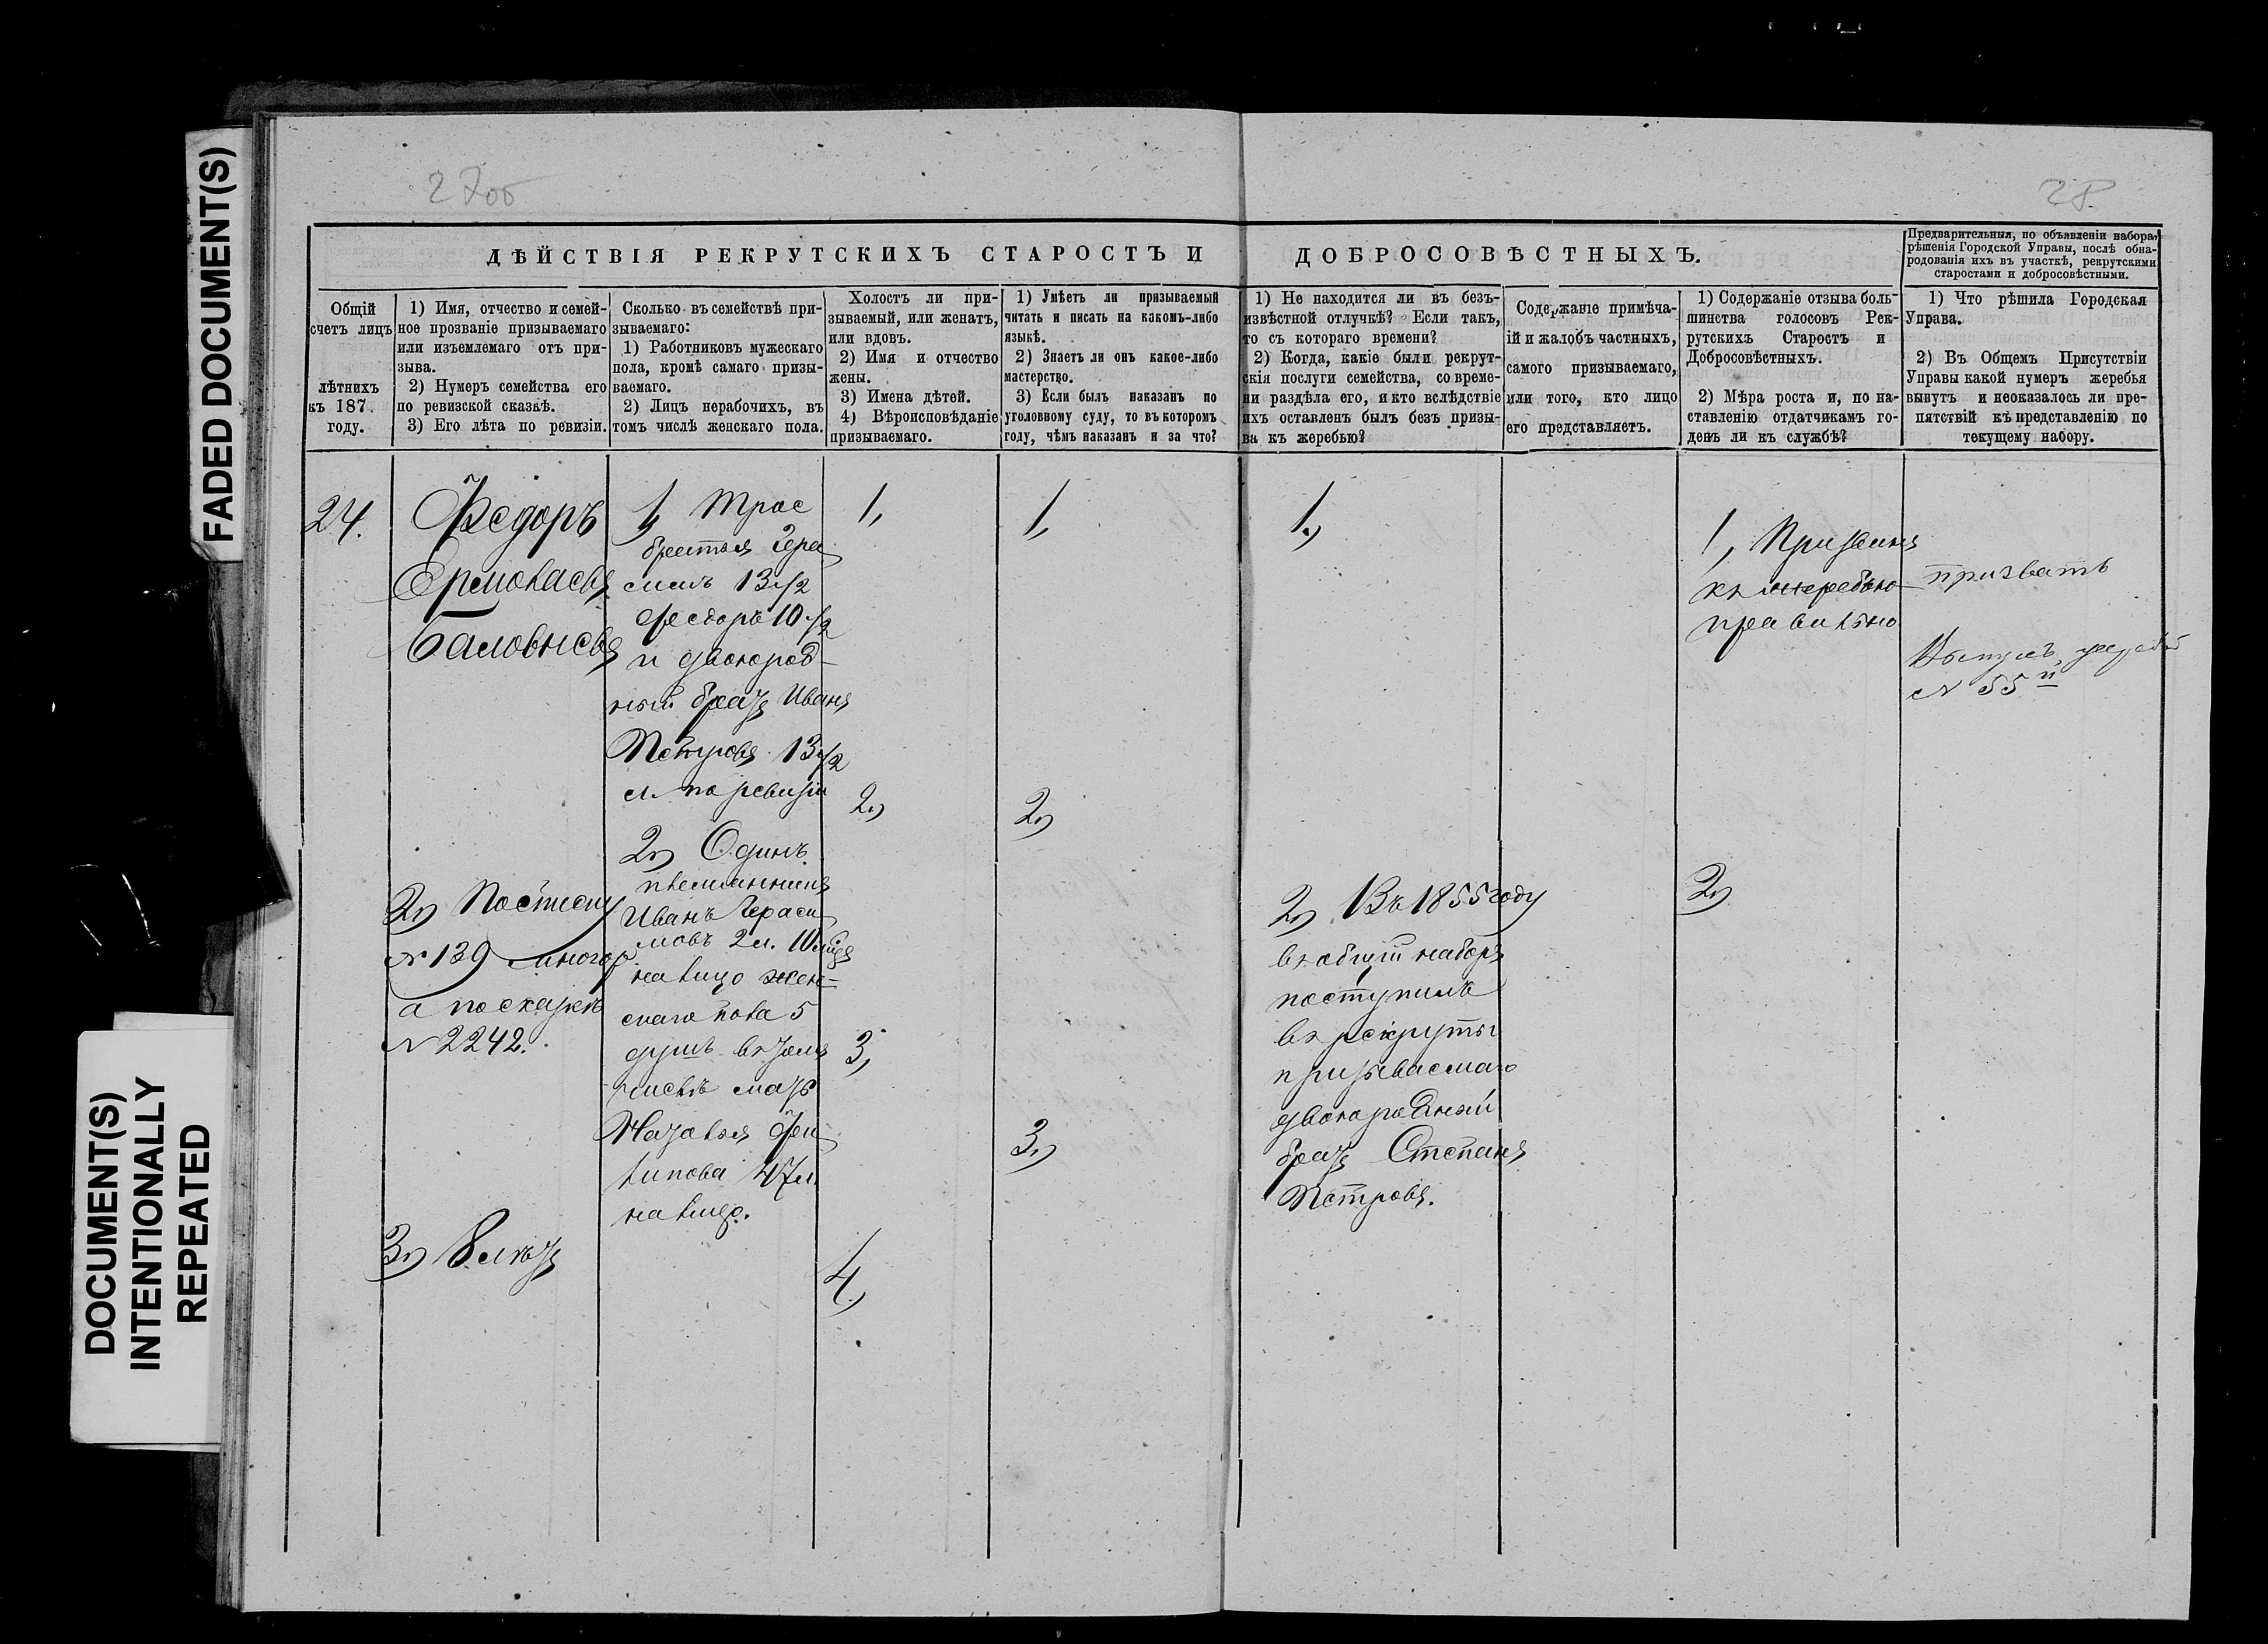 FADED DOCUMENT(S)
DOCUMENT(S)
INTENTIONALLY
REPEATED
27об
28.
ДѢЙСТВІЯ РЕКРУТСКИХЪ СТАРОСТЪ И ДОБРОСОВѢСТНЫХЪ.
Предварительныя, по объявленіи набора,
рѣшенія Городской Управы, послѣ обна-
родованія ихъ въ участкѣ, рекрутскими
старостами и добросовѣстными.
Общій
счетъ лицъ
лѣтнихъ
къ 187 .
году.
1) Имя, отчество и семей-
ное прозваніе призываемаго
или изъемлемаго отъ при-
зыва.
2) Нумеръ семейства его
по ревизской сказкѣ.
3) Его лѣта по ревизіи.
Сколько въ семействѣ при-
зываемаго:
1) Работниковъ мужескаго
пола, кромѣ самаго призы-
ваемаго.
2) Лицъ нерабочихъ, въ
томъ числѣ женскаго пола.
Холостъ ли при-
зываемый, или женатъ,
или вдовъ.
2) Имя и отчество
жены.
3) Имена дѣтей.
4) Вѣроисповѣданіе
призываемаго.
1) Умѣетъ ли призываемый
читать и писать на какомъ-либо
языкѣ.
2) Знаетъ ли онъ какое-либо
мастерство.
3) Если былъ наказанъ по
уголовному суду, то въ которомъ
году, чѣмъ наказанъ и за что?
1) Не находится ли въ безъ-
извѣстной отлучкѣ? Если такъ,
то съ котораго времени?
2) Когда, какіе были рекрут-
скія послуги семейства, со време-
ни раздѣла его, и кто вслѣдствіе
ихъ оставленъ былъ безъ призы-
ва къ жеребью?
Содержаніе примѣча-
ій и жалобъ частныхъ,
самого призываемаго,
или того, кто лицо
его представляетъ.
1) Содержаніе отзыва боль-
шинства голосовъ Рек-
рутскихъ Старостъ и
Добросовѣстныхъ.
2) Мѣра роста и, по на-
ставленію отдатчикамъ го-
денъ ли къ службѣ?
1) Что рѣшила Городская
Управа.
2) Въ Общемъ Присутствіи
Управы какой нумеръ жеребья
вынутъ и неоказалось ли пре-
пятствій къ представленію по
текущему набору.
24.
Ѳедоръ
Ермолаевъ
Баловневъ
2) По списку
№ 139
а по сказкѣ
№ 2242.
3) 8 лѣтъ
1, Трое
братья Гера
симъ 13 1/2
Ѳедоръ 10 1/2
и двоюрод-
ный братъ Иванъ
Петровъ 13 1/2
л. по ревизіи
2) Одинъ
племянникъ
Иванъ Гераси
мовъ 2 л. 10 мѣс
на лицо жен-
скаго пола 5
душъ въ томъ
числѣ мать
Наталья Фи
липова 47 л.
на лицо.
1,
2,)
3,
4,
1,
2,)
3,)
1,)
2) Въ 1855 году
въ общій наборъ
поступилъ
въ рекруты
призываемаго
двоюродный
братъ Степанъ
Петровъ.
1, Призванъ
къ жеребью
правильно
2,)
призвать
Вынулъ жеребій
№ 55й